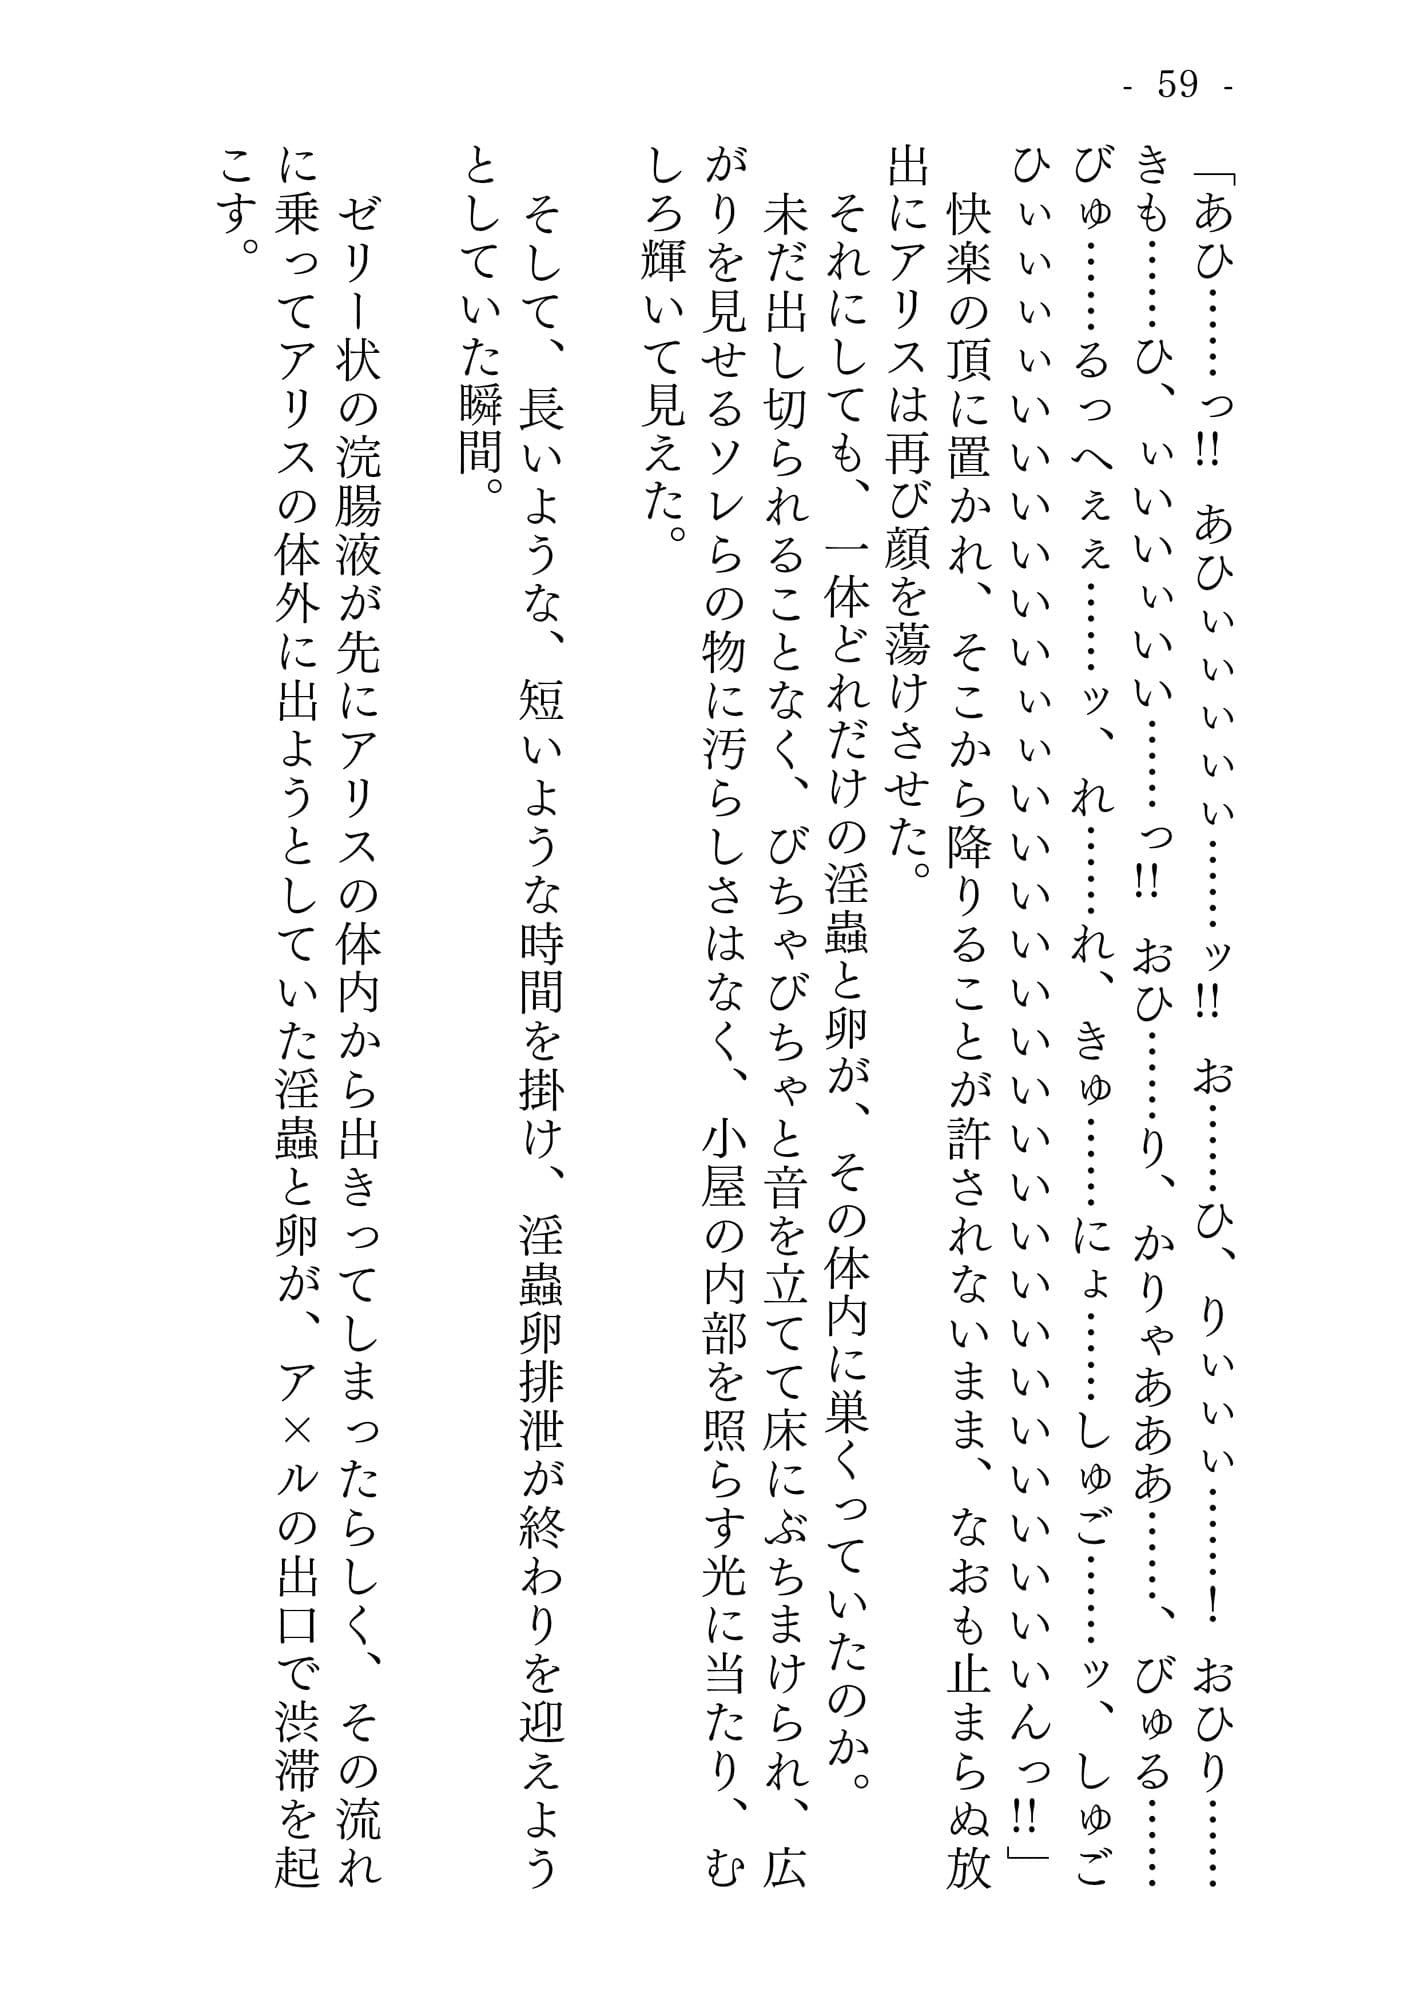 - 59 -
「あひ……っ!! あひぃぃぃぃぃ……ッ!! お……ひ、りぃぃぃ……! おひり……
きも……ひ、ぃいいぃいい……っ!! おひ……り、かりゃあああ……、びゅる……
びゅ……るっへぇぇ……ッ、れ……れ、きゅ……にょ……しゅご……ッ、しゅご
ひぃぃぃぃいいいいいいぃぃいいいいいいいいいいいいいいいいいいんっ!!」
　快楽の頂に置かれ、そこから降りることが許されないまま、なおも止まらぬ放
出にアリスは再び顔を蕩けさせた。
　それにしても、一体どれだけの淫蟲と卵が、その体内に巣くっていたのか。
　未だ出し切られることなく、びちゃびちゃと音を立てて床にぶちまけられ、広
がりを見せるソレらの物に汚らしさはなく、小屋の内部を照らす光に当たり、む
しろ輝いて見えた。
　そして、長いような、短いような時間を掛け、淫蟲卵排泄が終わりを迎えよう
としていた瞬間。
　ゼリー状の浣腸液が先にアリスの体内から出きってしまったらしく、その流れ
に乗ってアリスの体外に出ようとしていた淫蟲と卵が、ア×ルの出口で渋滞を起
こす。